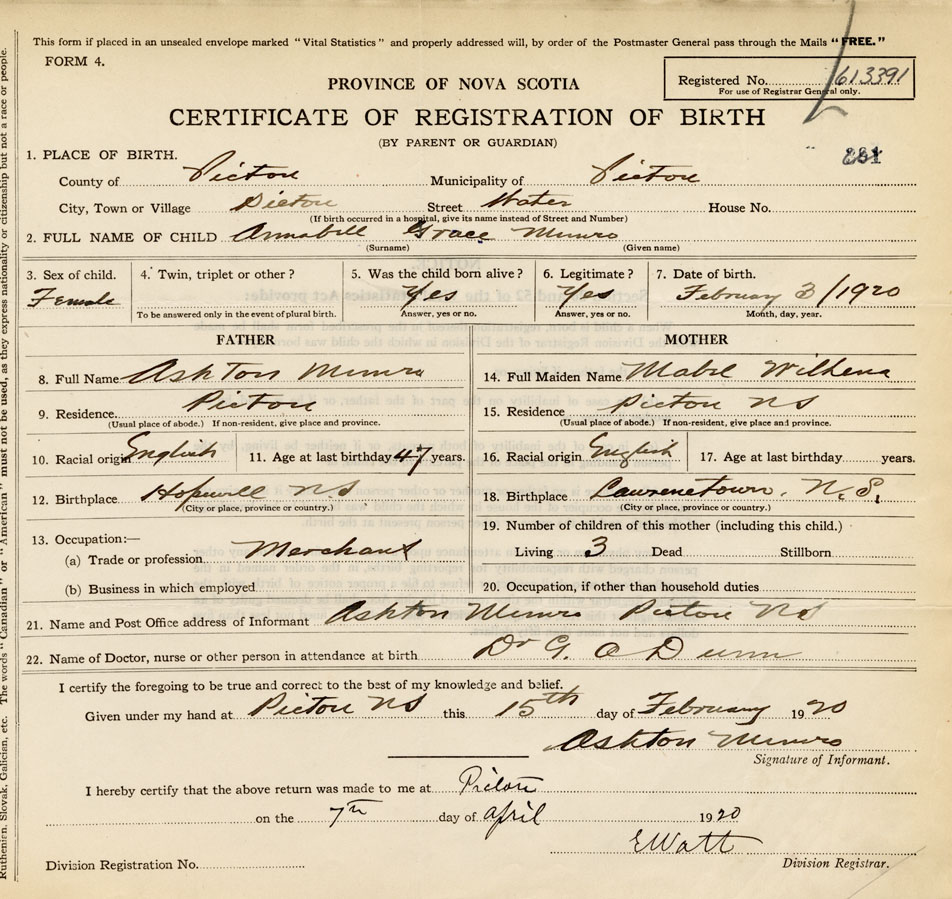 This form if placed in an unsealed envelope marked "Vital Statistics" and properly addressed will, by order of the Postmaster General pass through the Mails "FREE."
FORM 4.
Registered No. 613391
For use of Registrar General only.
PROVINCE OF NOVA SCOTIA
CERTIFICATE OF REGISTRATION OF BIRTH
(BY PARENT OR GUARDIAN)
231
1. PLACE OF BIRTH.
County of Pictou Municipality of Pictou
City, Town or Village Pictou Street Water House No.
(If birth occurred in a hospital, give its name instead of Street and Number)
2. FULL NAME OF CHILD Annabell Grace Munro
(Surname) (Given name)
3. Sex of child. 4. Twin, triplet or other? 5. Was the child born alive? 6. Legitimate? 7. Date of birth.
Female Yes Yes February 3/1920
To be answered only in the event of plural birth. Answer, yes or no. Answer, yes or no. Month, day, year.
FATHER MOTHER
8. Full Name Ashton Munro 14. Full Maiden Name Mabel
9. Residence. Pictou 15. Residence Pictou NS
(Usual place of abode.) If non-resident, give place and province. (Usual place of abode.) If non-resident, give place and province.
10. Racial origin English 11. Age at last birthday 47 years. 16. Racial origin English 17. Age at last birthday years.
12. Birthplace Hopewell N.S 18. Birthplace Lawrencetown. N.S.
(City or place, province or country.) (City or place, province or country.)
13. Occupation:— 19. Number of children of this mother (including this child.)
(a) Trade or profession Merchant Living 3 Dead Stillborn
(b) Business in which employed 20. Occupation, if other than household duties
21. Name and Post Office address of Informant Ashton Munro Pictou NS
22. Name of Doctor, nurse or other person in attendance at birth Dr G. C Dunn
I certify the foregoing to be true and correct to the best of my knowledge and belief.
Given under my hand at Pictou NS this 15th day of February 1920
Ashton Munro
Signature of Informant.
I hereby certify that the above return was made to me at Pictou
on the 7th day of April 1920
E Watt
Division Registration No. Division Registrar.
Ruthenian, Slovak, Galician, etc. The words "Canadian" or "American" must not be used, as they express nationality or citizenship but not a race or people.